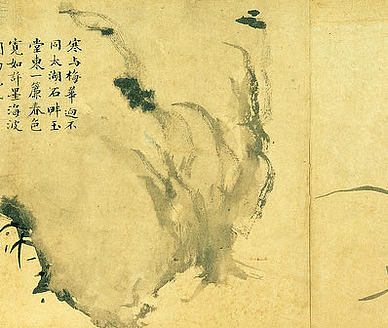 寒与梅華迥不
同太湖石畔玉
堂東一簾春色
寬如許墨海波